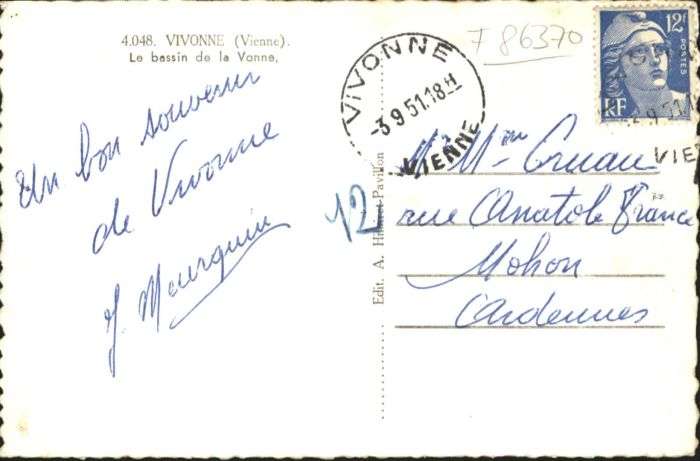 4.048. VIVONNE (Vienne).
Le bassin de la Vonne.
Un bon souvenir
de Vivonne
J. Mourguin
12
Edit. A. Pavillon
VIVONNE
-3 9 51.18H
VIENNE
7 86370
12F
POSTES
RF
Mr Mme Cruau
rue Anatole France
Mohon
Ardennes